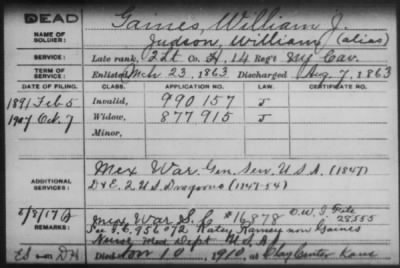 DEAD
NAME OF SOLDIER:
Gaines, William J.
Judson, William (alias)
SERVICE: Late rank, 2 Lt Co. H, 14 Reg't My Cav.
TERM OF SERVICE: Enlisted Mch 23, 1863 Discharged Aug. 7, 1863
DATE OF FILING. CLASS. APPLICATION NO. LAW. CERTIFICATE NO.
1891 Feb 5 Invalid, 990157 J
1907 Oct. 7 Widow, 877915 J
Minor,
ADDITIONAL SERVICES:
Mex War. Gen. Serv. U.S.A. (1847)
D & E. 2 U.S. Dragoons (1847-54)
5/8/17 Mex War S. C. #16878 O.W.I. File 28555
See I. C. 956072 Katey Ramsey now Gaines
Nurse Med Dept U.S.A.
Died 10, 1910, at Clay Center Kans